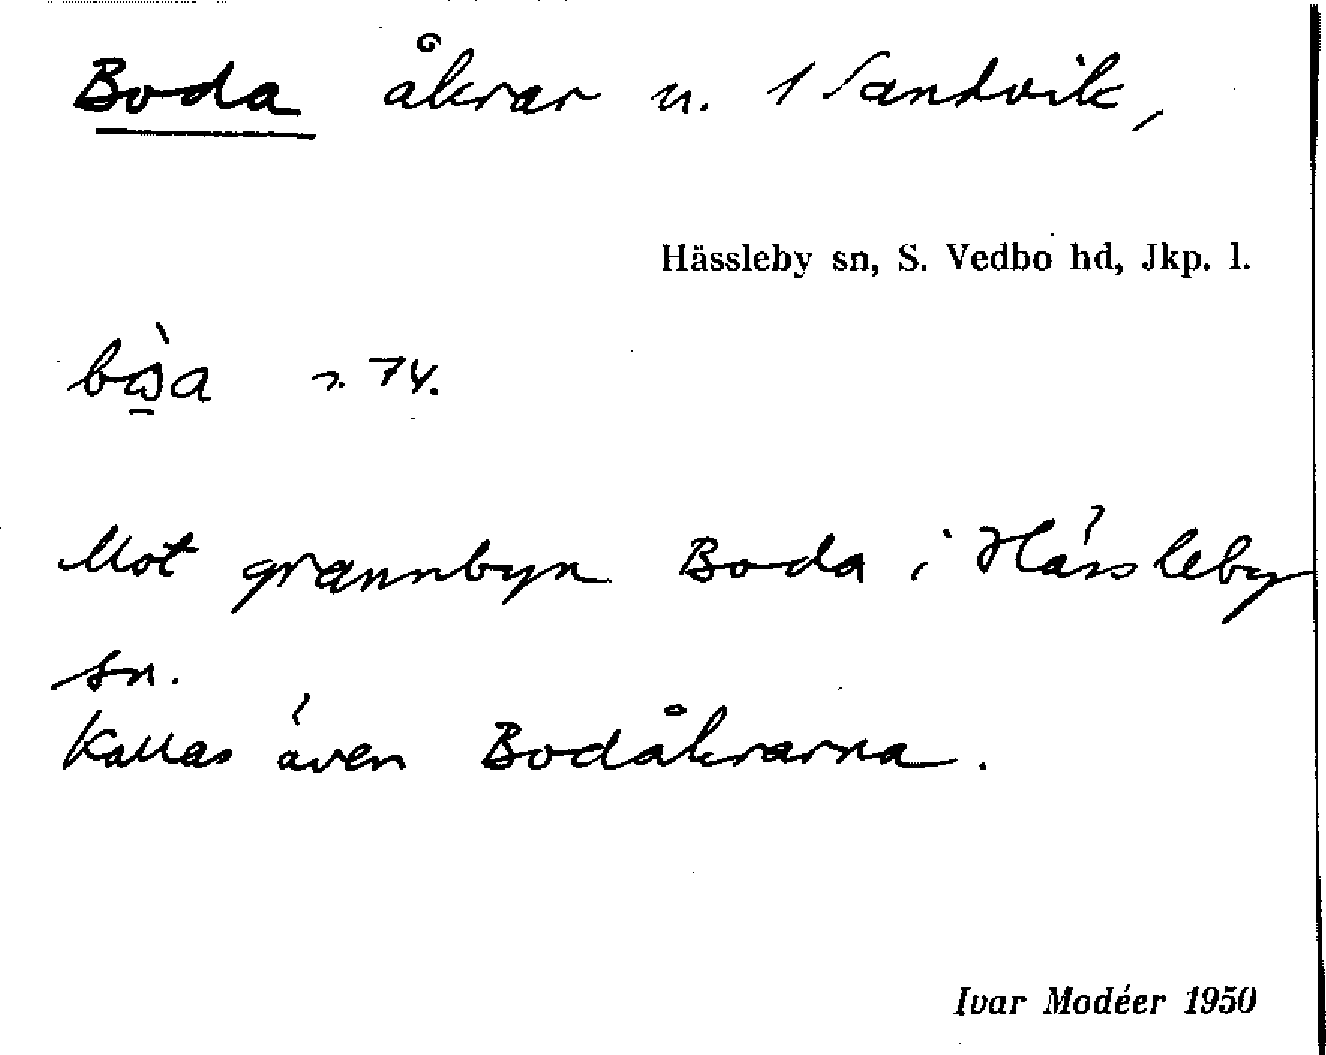 Boda åkrar u. 1 Sandvik,
Hässleby sn, S. Vedbo hd, Jkp. l.
n. 74.
Mot grannbyn Boda i Hässleby
sn.
Kallas även Bodåkrarna.
Ivar Modéer 1950